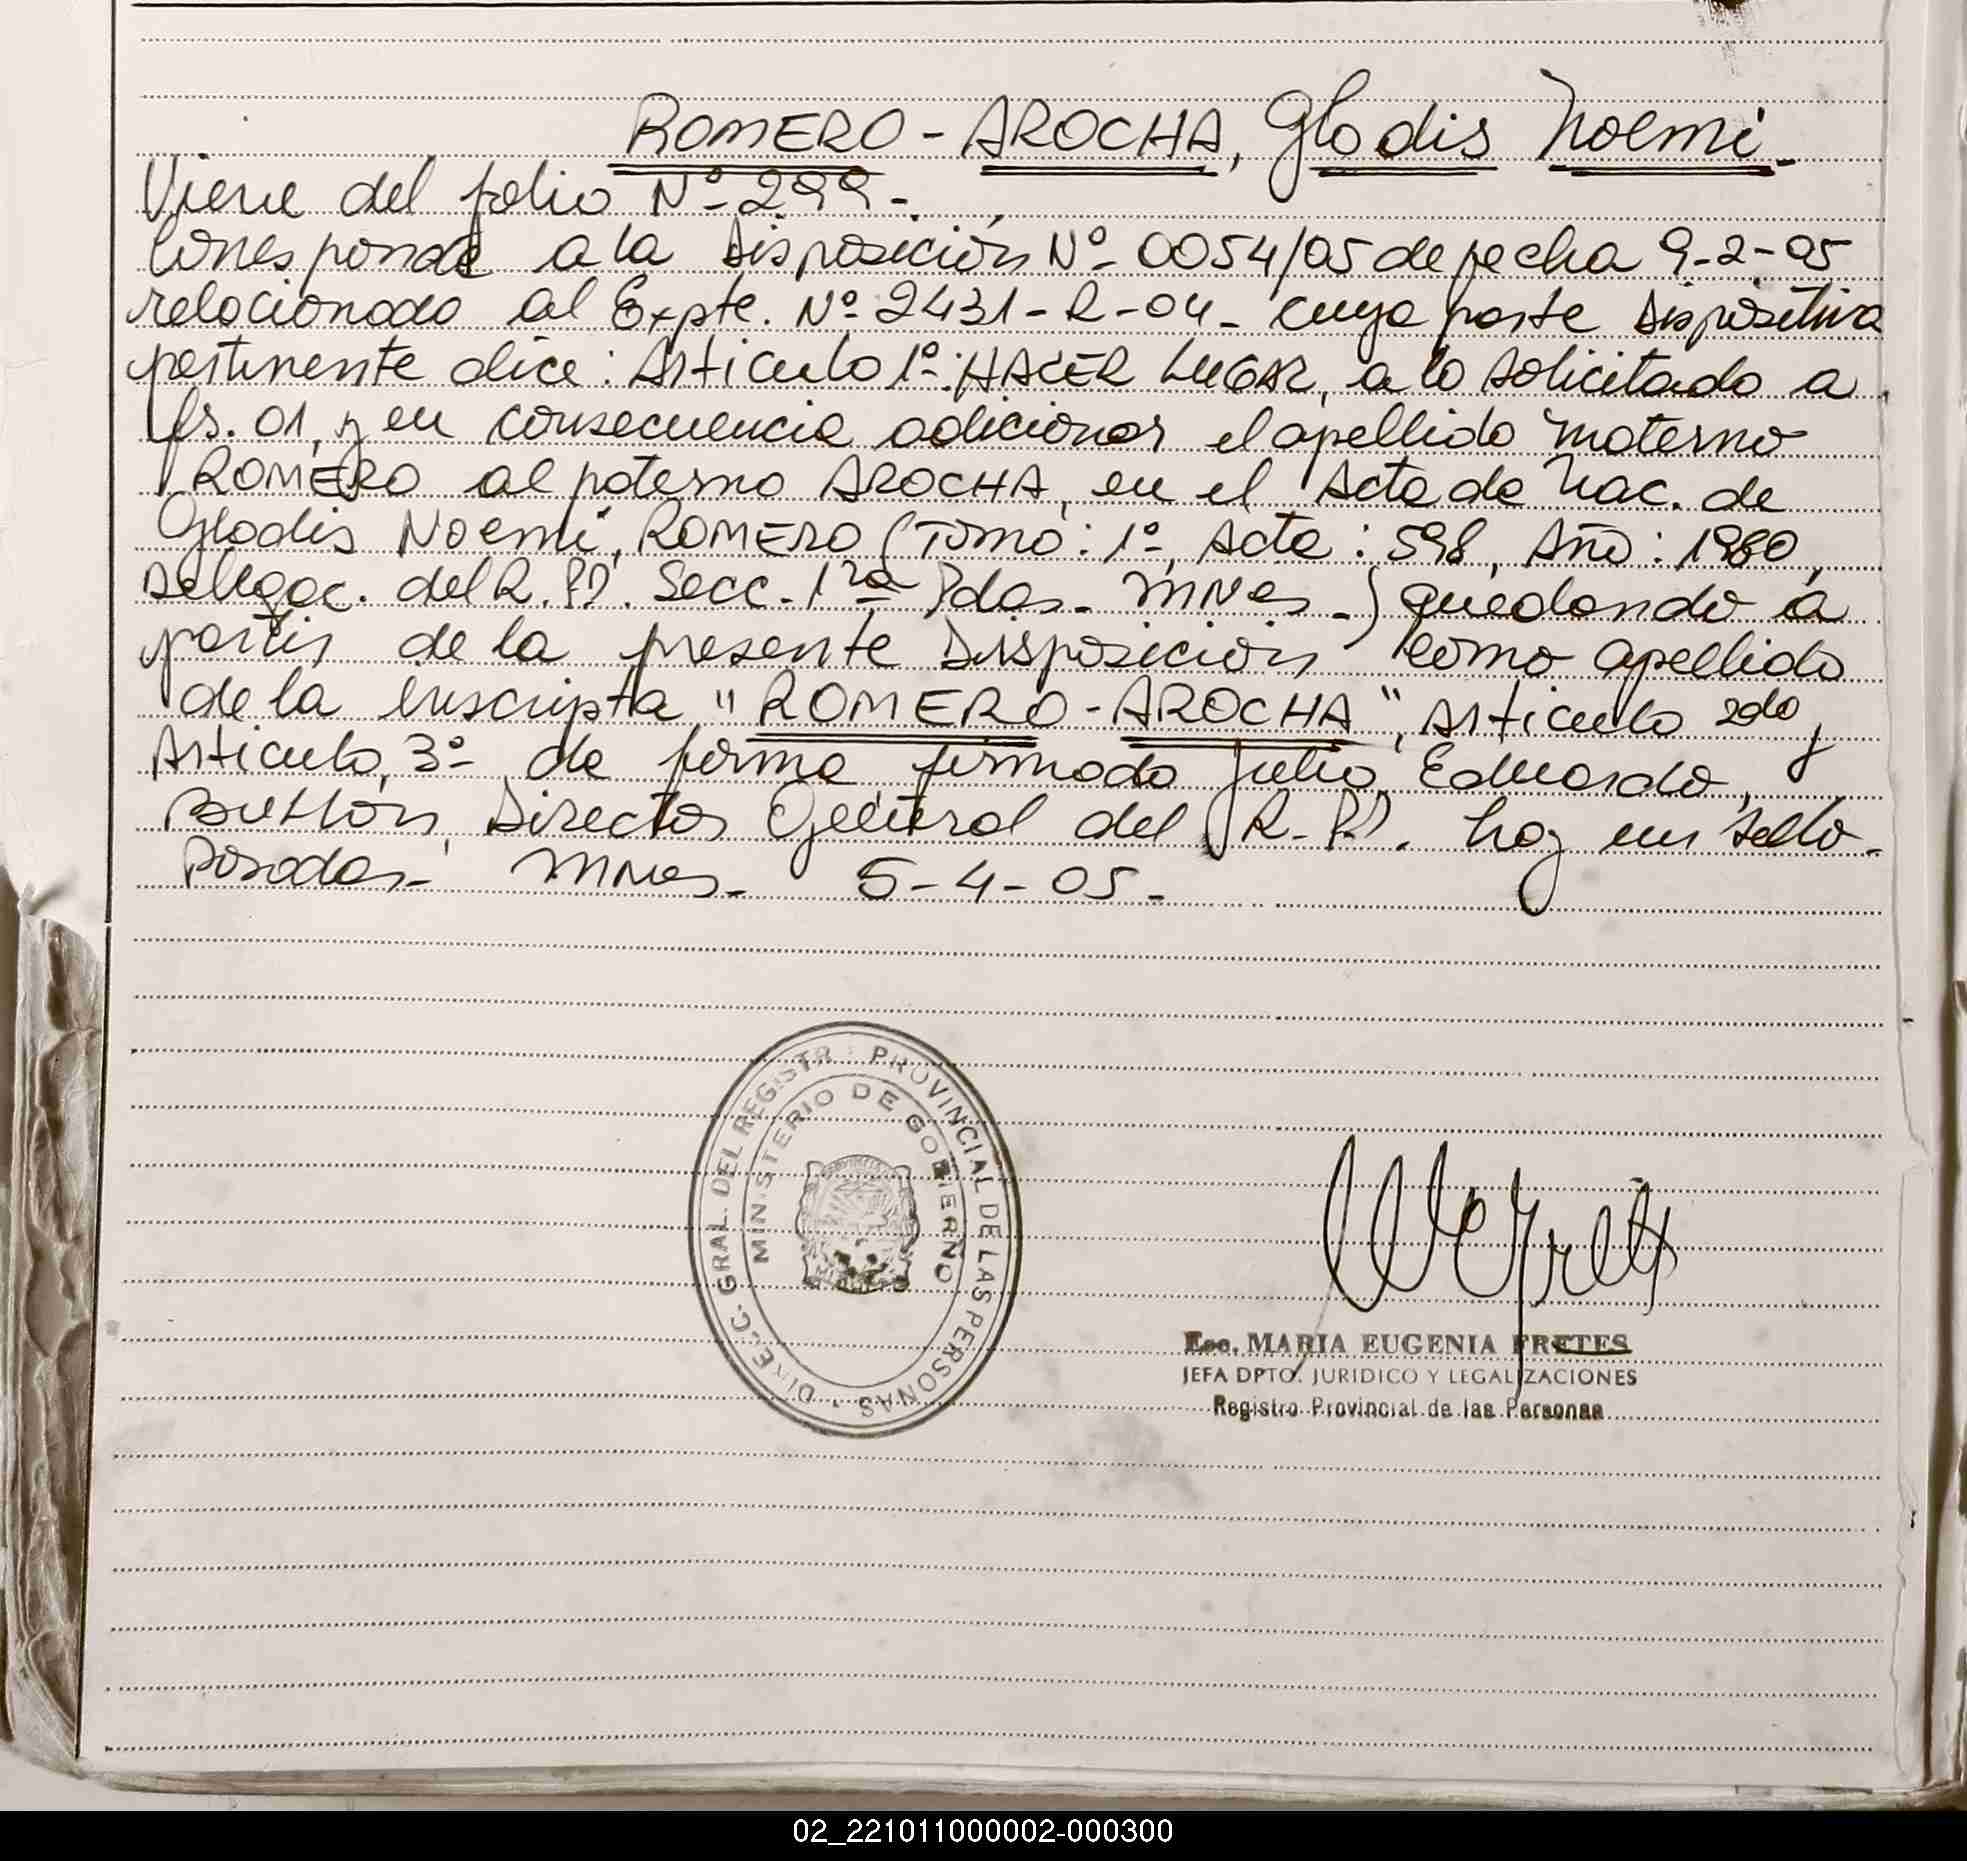 ROMERO - AROCHA, Gladis Noemi.-
Viene del folio Nº 299.-
Corresponde a la Disposición Nº 0054/05 de fecha 9-2-05
relacionado al Expte. Nº 2431-R-04- cuya parte Dispositiva
pertinente dice: Artículo 1º: HACER LUGAR, a lo solicitado a
fs. 01, y en consecuencia adicionar el apellido materno
ROMERO al paterno AROCHA, en el Acta de Nac. de
Gladis Noemi, ROMERO (Tomo: 1º, Acta: 598, Año: 1980,
Delegac. del R.P.P. Secc. 1ra Pdas. Mnes.-) quedando a
partir de la presente Disposición como apellido
de la inscripta "ROMERO-AROCHA", Artículo 2do y
Artículo 3º de forma firmado Julio Eduardo,
Director General del R.P.P. hay un sello.
Posadas- Mnes.- 5-4-05.-
DIREC. GRAL. DEL REGISTR PROVINCIAL DE LAS PERSONAS
MINISTERIO DE GOBIERNO
Esc. MARIA EUGENIA FRETES
JEFA DPTO. JURIDICO Y LEGALIZACIONES
Registro Provincial de las Personas
02_221011000002-000300